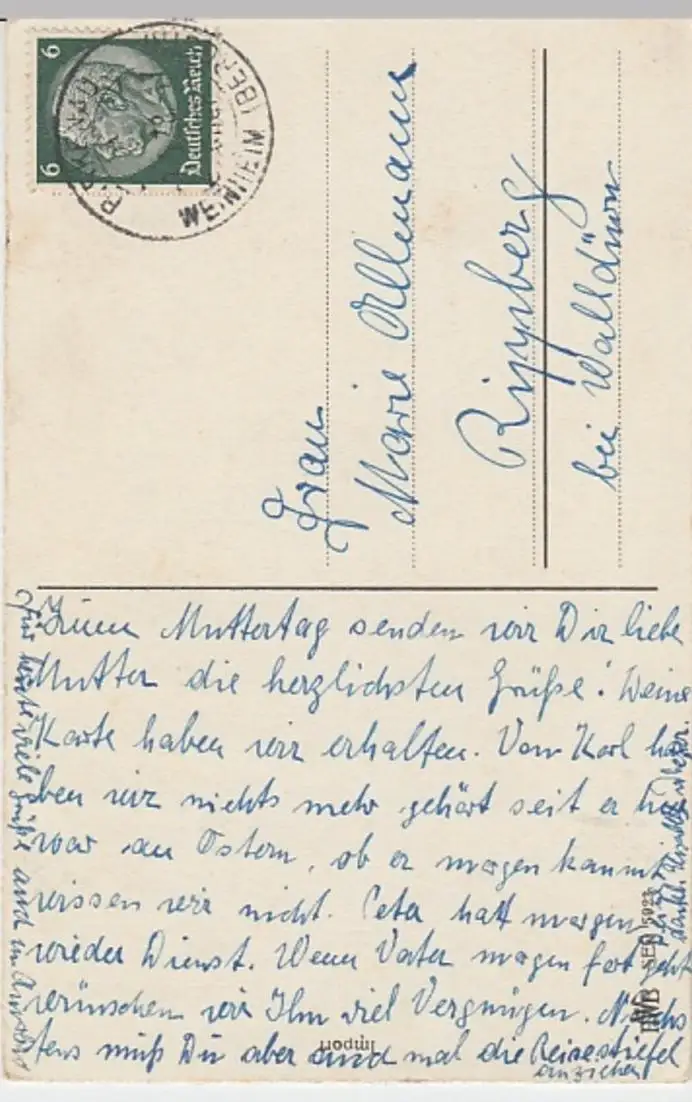 6 6
Deutsches Reich
BIRKENAU
WEINHEIM (BERGSTR
Frau
Marie Allmann
Rippberg
bei Walldürn
Zum Muttertag senden wir Dir liebe
Mutter die herzlichsten Grüße! Deine
Karte haben wir erhalten. Vom Karl ha-
ben wir nichts mehr gehört seit er hier
war an Ostern, ob er morgen kommt
wissen wir nicht. Peter hat morgen
wieder Dienst. Wenn Vater morgen fort geht
wünschen wir Ihm viel Vergnügen. Nächs
tens mußt Du aber auch mal die Reisestiefel
anziehen
Für heute viele Grüße
EWB SER 5923
Import